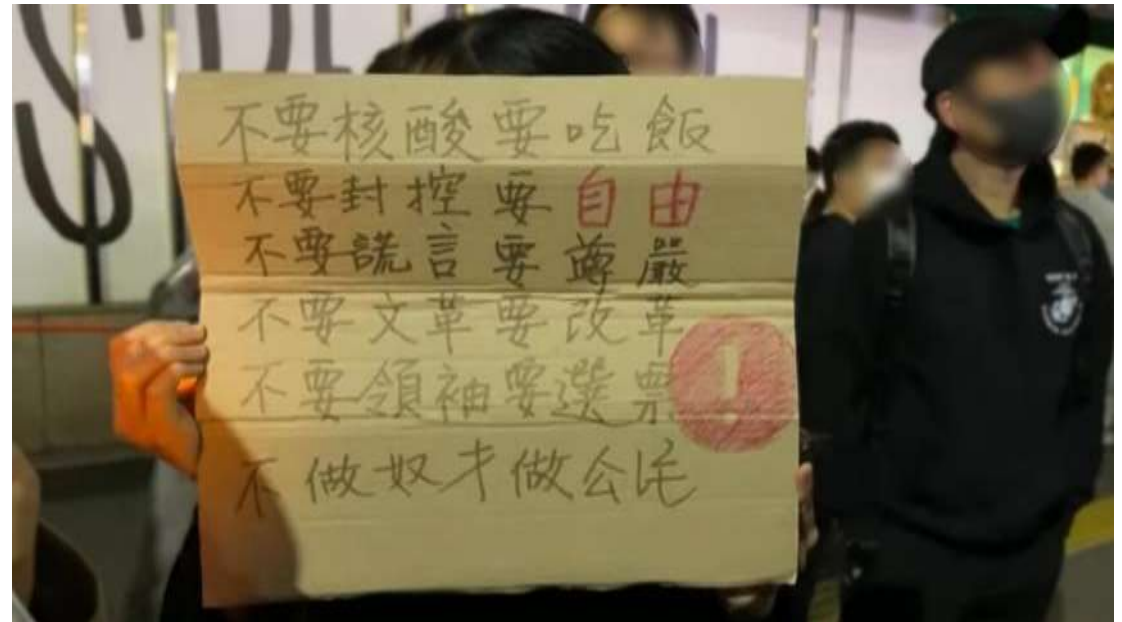 不要核酸要吃飯
不要封控要自由
不要謊言要尊嚴
不要文革要改革
不要領袖要選票
!
不做奴才做公民